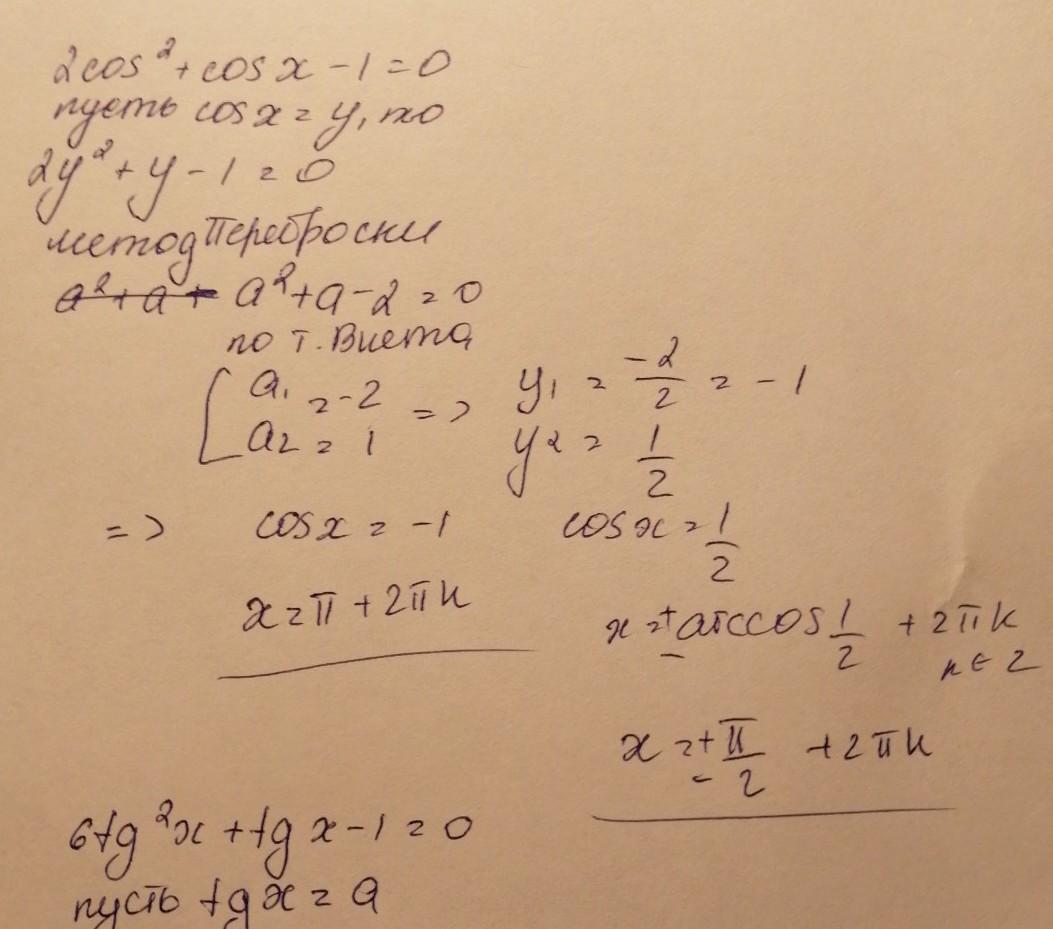 2cos² + cos x - 1 = 0
пусть cos x = y, то
2y² + y - 1 = 0
метод Переброски
a² + a + a² + a - 2 = 0
по т. Виета
[ a₁ = -2 => y₁ = -2/2 = -1
a₂ = 1 y₂ = 1/2
=> cos x = -1 cos x = 1/2
x = π + 2πk
x = ± arccos 1/2 + 2πk
k ∈ Z
x = ± π/2 + 2πk
6tg²x + tg x - 1 = 0
пусть tg x = a